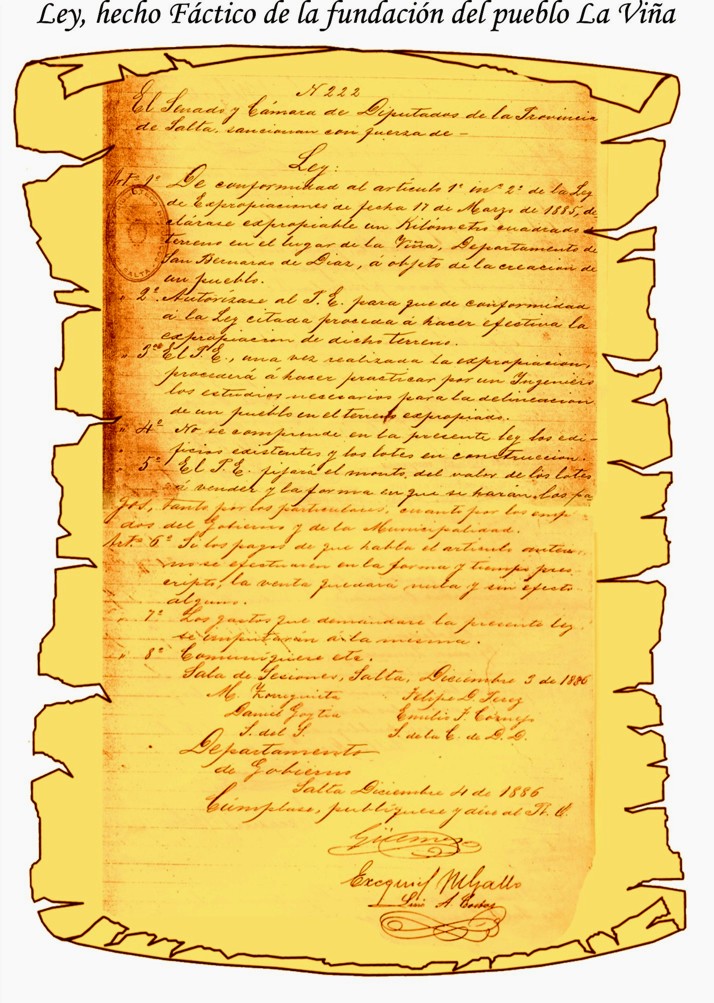 Ley, hecho Fáctico de la fundación del pueblo La Viña
N 222
El Senado y Cámara de Diputados de la Provincia
de Salta, sancionan con fuerza de -
Ley:
Art. 1º De conformidad al artículo 1º inº 2º de la Ley
de Expropiaciones de fecha 17 de Marzo de 1885, de
clárase expropiable un Kilómetro cuadrado de
terreno en el lugar de la Viña, Departamento de
San Bernardo de Diaz, á objeto de la creacion de
un pueblo.
" 2º Autorizase al P. E. para que de conformidad
á la Ley citada proceda á hacer efectiva la
expropiacion de dicho terreno.
" 3º El P. E., una vez realizada la expropiacion,
procederá á hacer practicar por un Ingeniero
los estudios necesarios para la delineacion
de un pueblo en el terreno expropiado.
" 4º No se comprende en la presente ley los edi-
ficios existentes y los lotes en construccion.
" 5º El P. E. fijará el monto del valor de los lotes
á vender y la forma en que se haran los pa
gos, tanto por los particulares, cuanto por los
dos del Gobierno y de la Municipalidad.
Art. 6º Si los pagos de que habla el artículo
no se efectuaren en la forma y tiempo pres-
cripto, la venta quedará nula y sin efecto
alguno.
" 7º Los gastos que demandare la presente ley
se imputarán á la misma.
" 8º Comuníquese etc.
Sala de Sesiones, Salta, Diciembre 3 de 1886
M. Zorreguieta Felipe
Daniel Goytia Emilio F. Cornejo
S. del S. S. de la C. de D.D.
Departamento
de Gobierno
Salta Diciembre 4 de 1886
Cúmplase, publíquese y dése al R. O.
Güemes
Exequiel M Gallo
Luis A